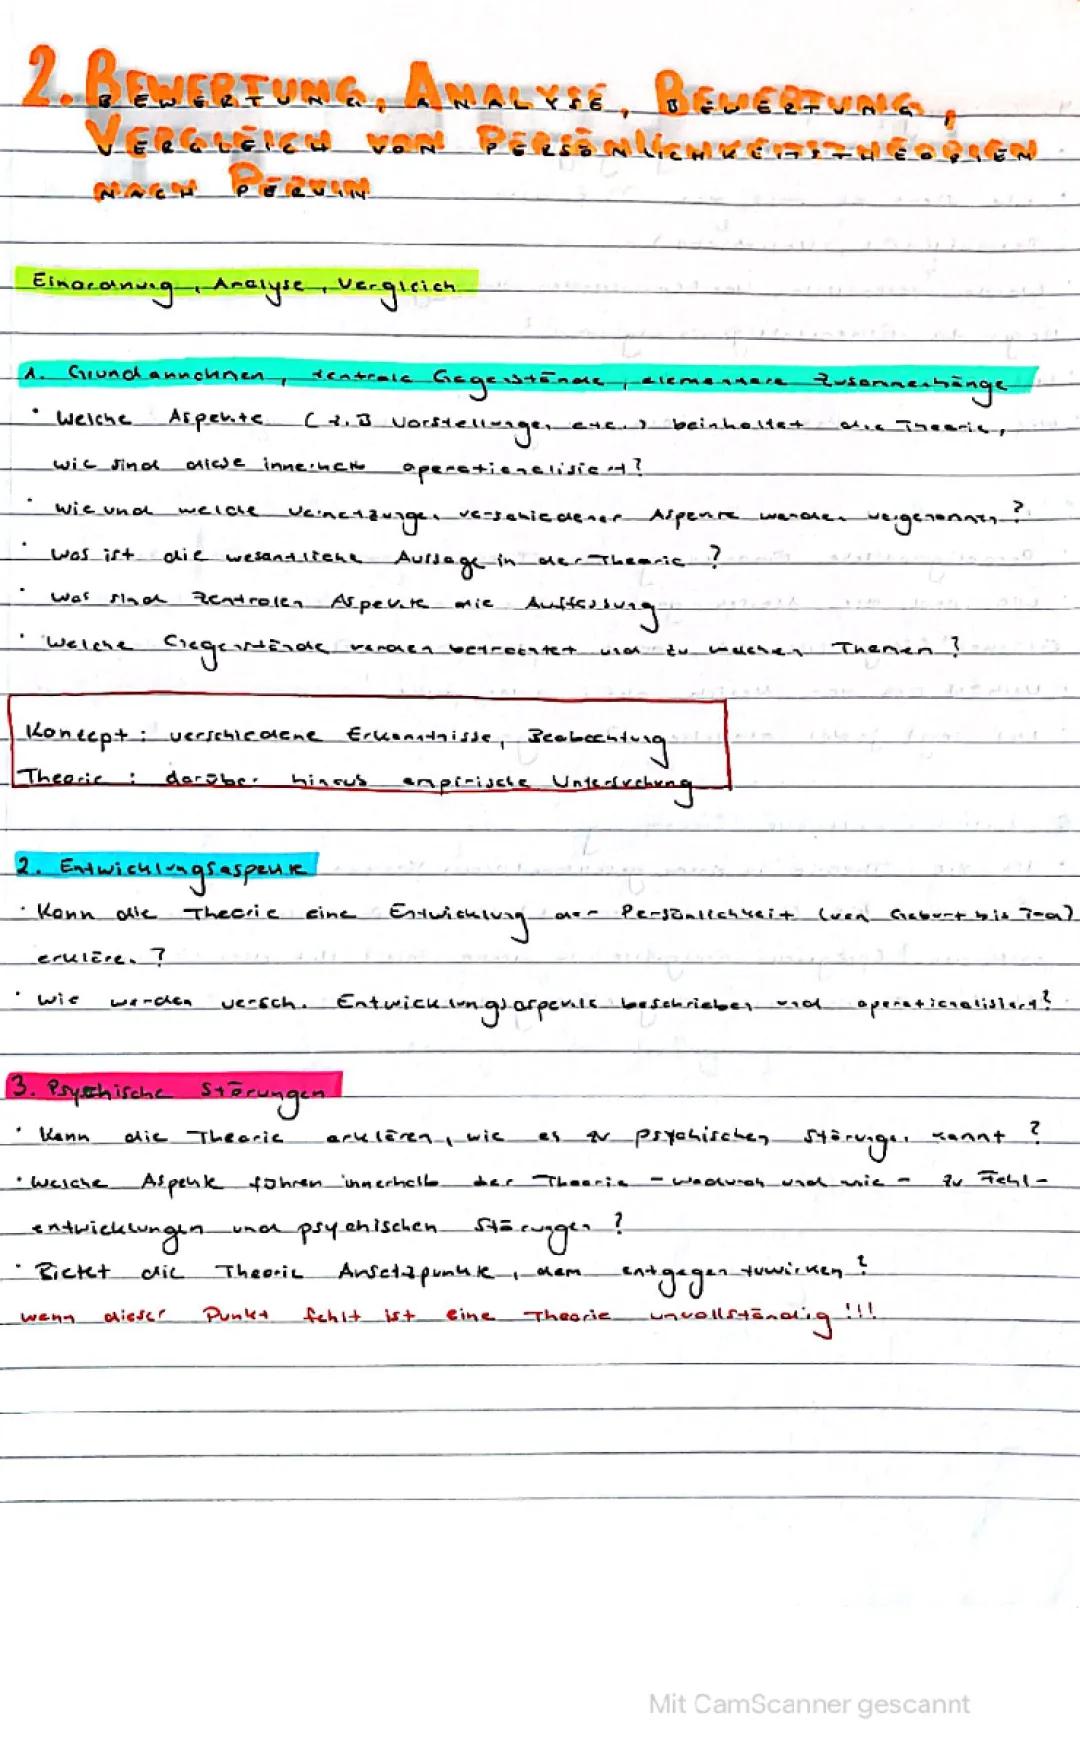 2. BEWERTUNG, ANALYSE, BEWERTUNG,
VERGLEICH VON PERSÖNLICHKEITSTHEORIEN
NACH PERVIN
Einordnung, Analyse, Vergleich
1. Grundannahmen, zentrale Gegenstände, elementare Zusammenhänge
• Welche Aspekte (z.B Vorstellungen etc.) beinhaltet die Theorie,
wie sind diese innerhalb operationalisiert?
• Wie und welche Vernetzungen verschiedener Aspekte werden vorgenommen?
• Was ist die wesentliche Aussage in der Theorie?
• Was sind zentralen Aspekte die Auffassung
• Welche Gegenstände werden betrachtet und zu welchen Themen?
Konzept: verschiedene Erkenntnisse, Beobachtung
Theorie: darüber hinaus empirische Untersuchung
2. Entwicklungsaspekte
• Kann die Theorie eine Entwicklung der Persönlichkeit (von Geburt bis Tod)
erklären?
• Wie werden versch. Entwicklungsaspekte beschrieben und operationalisiert?
3. Psychische Störungen
• Kann die Theorie erklären, wie es zu psychischen Störungen kommt?
• Welche Aspekte führen innerhalb der Theorie - wodurch und wie - zu Fehl-
entwicklungen und psychischen Störungen?
• Bietet die Theorie Ansatzpunkte, dem entgegen zuwirken?
wenn dieser Punkt fehlt ist eine Theorie unvollständig!!!
Mit CamScanner gescannt